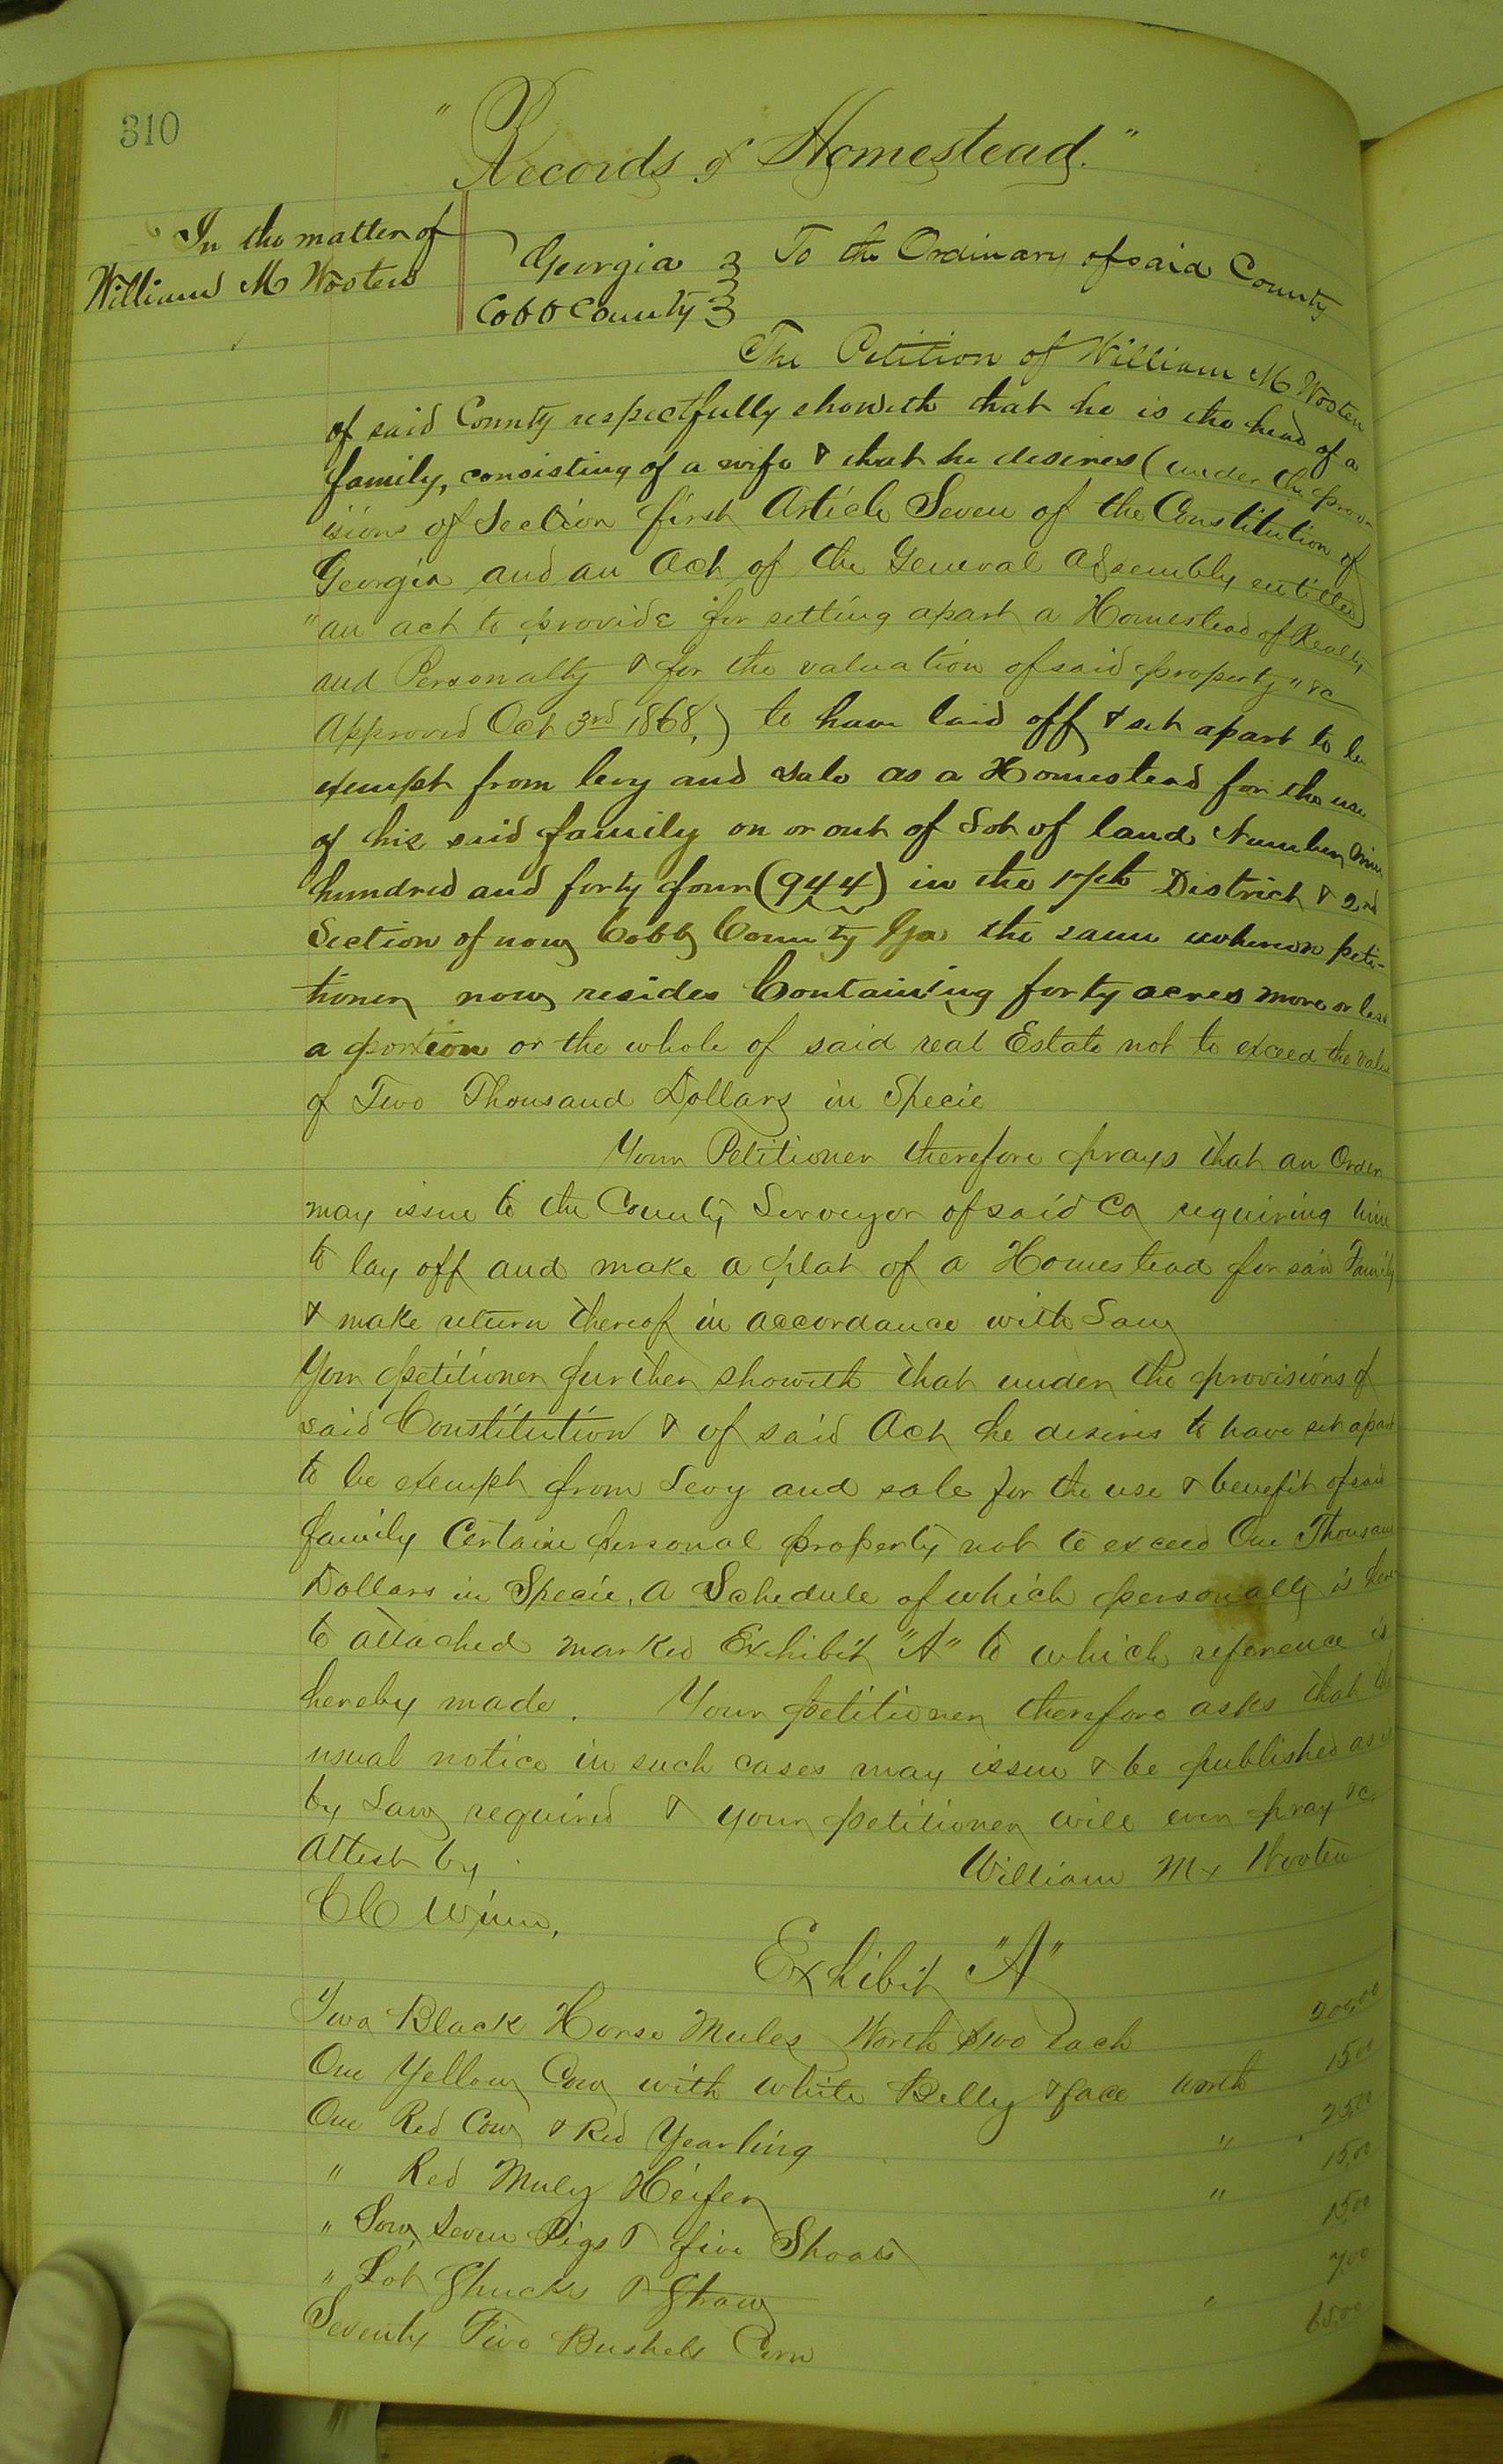 310
"Records of Homestead."
In the matter of
William M Wooten
Georgia
Cobb County
To the Ordinary of said County
The Petition of William M Wooten
of said County respectfully showeth that he is the head of a
family, consisting of a wife & that he desires (under the prov-
isions of Section first Article Seven of the Constitution of
Georgia and an Act of the General Assembly entitled
"an act to provide for setting apart a Homestead of Realty
and Personalty & for the valuation of said property" &c
Approved Oct 3rd 1868,) to have laid off & set apart to be
exempt from levy and sale as a Homestead for the use
of his said family on or out of Lot of land Number Nine
hundred and forty four (944) in the 17th District & 2nd
Section of now Cobb County Ga the same whereon peti-
tioner now resides Containing forty acres more or less
a portion or the whole of said real Estate not to exceed the value
of Two Thousand Dollars in Specie
Your Petitioner therefore prays that an Order
may issue to the County Surveyor of said Co requiring him
to lay off and make a plat of a Homestead for said Family
& make return thereof in accordance with Law
Your petitioner further showeth that under the provisions of
said Constitution & of said Act he desires to have set apart
to be exempt from Levy and sale for the use & benefit of said
family Certain personal property not to exceed One Thousand
Dollars in Specie, A Schedule of which personalty is here
to attached marked Exhibit "A" to which reference is
hereby made. Your petitioner therefore asks that the
usual notice in such cases may issue & be published as is
by Law required & your petitioner will ever pray &c
Attest by
William M x Wooten
C C Winn,
Exhibit "A"
Two Black Horse Mules Worth $100 each 200,00
One Yellow Cow with White Belly & face worth 15,00
One Red Cow & Red Yearling " 25,00
" Red Muly Heifer " 15,00
" Sow, Seven Pigs & five Shoats 15,00
" Lot Shucks & Straw 7,00
Seventy Five Bushels Corn " 65,00